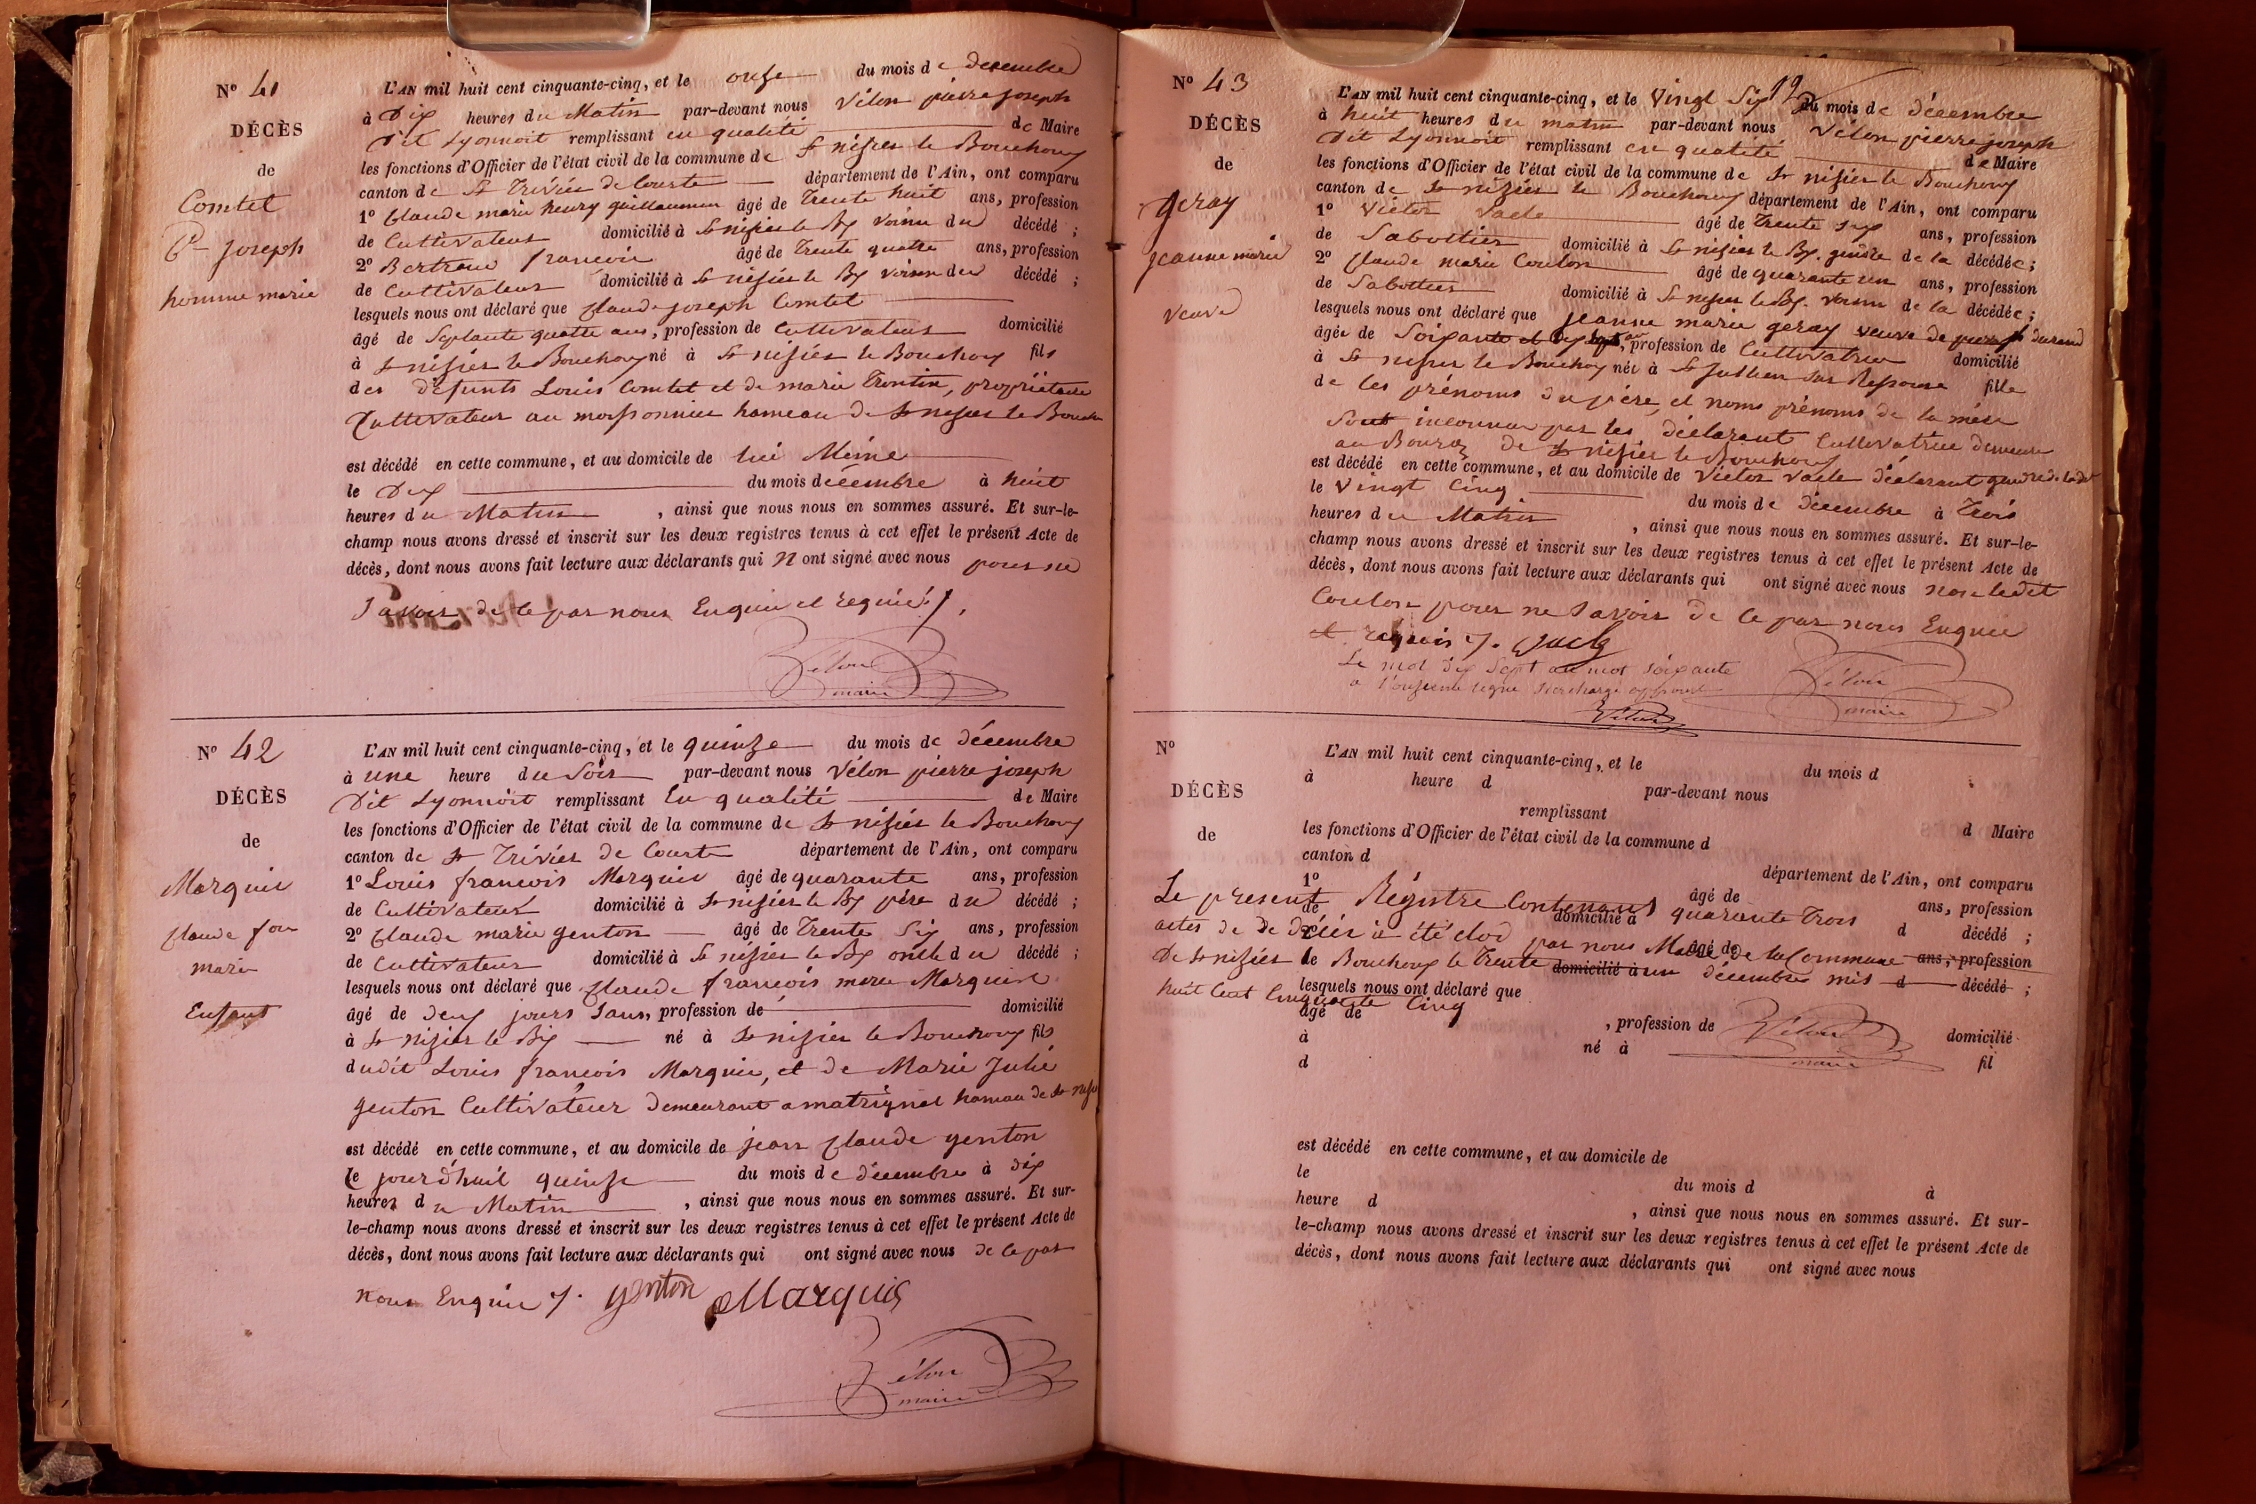 N° 41
DÉCÈS
de
Comtet
Cde Joseph
homme marié
L'AN mil huit cent cinquante-cinq, et le onze du mois de décembre
à Dix heures du Matin par-devant nous Vélon pierre joseph
Dit Lyonnoit remplissant en qualité de Maire
les fonctions d'Officier de l'état civil de la commune de St nisier le Bouchoux
canton de St Trivier de Courte département de l'Ain, ont comparu
1° Claude marie henry guillaumin âgé de Trente huit ans, profession
de Cultivateur domicilié à St nisier le Bx voisin du décédé ;
2° Bertrand francois âgé de Trente quatre ans, profession
de Cultivateur domicilié à St nisier le Bx voisin du décédé ;
lesquels nous ont déclaré que Claude joseph Comtet
âgé de Septante quatre ans, profession de Cultivateur domicilié
à St nisier le Bouchoux né à St nisier le Bouchoux fils
des défunts Louis Comtet et de marie Trontin, propriétaire
Cultivateur au morssonnier hameau de St nisier le Bouch
est décédé en cette commune, et au domicile de lui Même
le Dix du mois décembre à huit
heures du Matin , ainsi que nous nous en sommes assuré. Et sur-le-
champ nous avons dressé et inscrit sur les deux registres tenus à cet effet le présent Acte de
décès, dont nous avons fait lecture aux déclarants qui N ont signé avec nous pour ne
Savoir de ce par nous Enquie et requié /.
Vélon
maire
N° 42
DÉCÈS
de
Marquis
Claude fois
marie
Enfant
L'AN mil huit cent cinquante-cinq, et le quinze du mois de décembre
à une heure du Soir par-devant nous Vélon pierre joseph
Dit Lyonnoit remplissant En qualité de Maire
les fonctions d'Officier de l'état civil de la commune de St nisier le Bouchoux
canton de St Trivier de Courte département de l'Ain, ont comparu
1° Louis francois Marquis âgé de quarante ans, profession
de Cultivateur domicilié à St nisier le Bx père du décédé ;
2° Claude marie genton âgé de Trente Six ans, profession
de Cultivateur domicilié à St nisier le Bx oncle du décédé ;
lesquels nous ont déclaré que Claude francois marie Marquis
âgé de deux jours Sans, profession de domicilié
à St nizier le Bx né à St nizier le Bouchoux fils
dudit Louis francois Marquis, et de Marie Julie
genton Cultivateur demeurant a matrignat hameau de St nisie
est décédé en cette commune, et au domicile de jean Claude genton
le jourd'huit quinze du mois de décembre à dix
heures du Matin , ainsi que nous nous en sommes assuré. Et sur-
le-champ nous avons dressé et inscrit sur les deux registres tenus à cet effet le présent Acte de
décès, dont nous avons fait lecture aux déclarants qui ont signé avec nous de ce par
nous Enquie /. genton Marquis
Vélon
maire
N° 43
DÉCÈS
de
geray
jeanne marie
veuve
L'AN mil huit cent cinquante-cinq, et le Vingt Six du mois de décembre
à huit heures du matin par-devant nous Vélon pierre joseph
Dit Lyonnoit remplissant en qualité de Maire
les fonctions d'Officier de l'état civil de la commune de St nisier le Bouchoux
canton de St nizier le Bouchoux département de l'Ain, ont comparu
1° Victor Vacle âgé de Trente Six ans, profession
de Sabottier domicilié à St nisier le Bx. gendre de la décédée ;
2° Claude marie Coulon âgé de quarante un ans, profession
de Sabottier domicilié à St nisier le Bx. voisin de la décédée ;
lesquels nous ont déclaré que jeanne marie geray veuve de pierre durand
âgée de Soixante et dix sept ans, profession de Cultivatrice domicilié
à St nisier le Bouchoux née à St Jullien sur Reyssouse fille
de les prénoms du père, et noms prénoms de la mère
Sont inconnus par les déclarant Cultivatrice demeure
au Bourg de St nisier le Bouchoux
est décédé en cette commune, et au domicile de Victor Vacle déclarant gendre de lad.
le Vingt Cinq du mois de décembre à Trois
heures du Matin , ainsi que nous nous en sommes assuré. Et sur-le-
champ nous avons dressé et inscrit sur les deux registres tenus à cet effet le présent Acte de
décès, dont nous avons fait lecture aux déclarants qui ont signé avec nous non ledit
Coulon pour ne Savoir de ce par nous Enquie
et requis /. Vacle
Le mot dix Sept au mot Soixante
a l'onzieme ligne Surchargé approuvé
Vélon
maire
Vélon
N°
DÉCÈS
de
L'AN mil huit cent cinquante-cinq, et le du mois d
à heure d par-devant nous
remplissant d Maire
les fonctions d'Officier de l'état civil de la commune d
canton d département de l'Ain, ont comparu
1° âgé de ans, profession
Le présent Régistre Contenant quarante Trois
de domicilié à d décédé ;
actes de De Décès à été clos par nous Maire de la Commune
2° âgé de ans, profession
De St nisier le Bouchoux le Trente un décembre mil
de domicilié à d décédé ;
huit Cent Cinquante Cinq
lesquels nous ont déclaré que
âgé de , profession de domicilié
à né à fil
d
Vélon
maire
est décédé en cette commune, et au domicile de
le du mois d à
heure d , ainsi que nous nous en sommes assuré. Et sur-
le-champ nous avons dressé et inscrit sur les deux registres tenus à cet effet le présent Acte de
décès, dont nous avons fait lecture aux déclarants qui ont signé avec nous